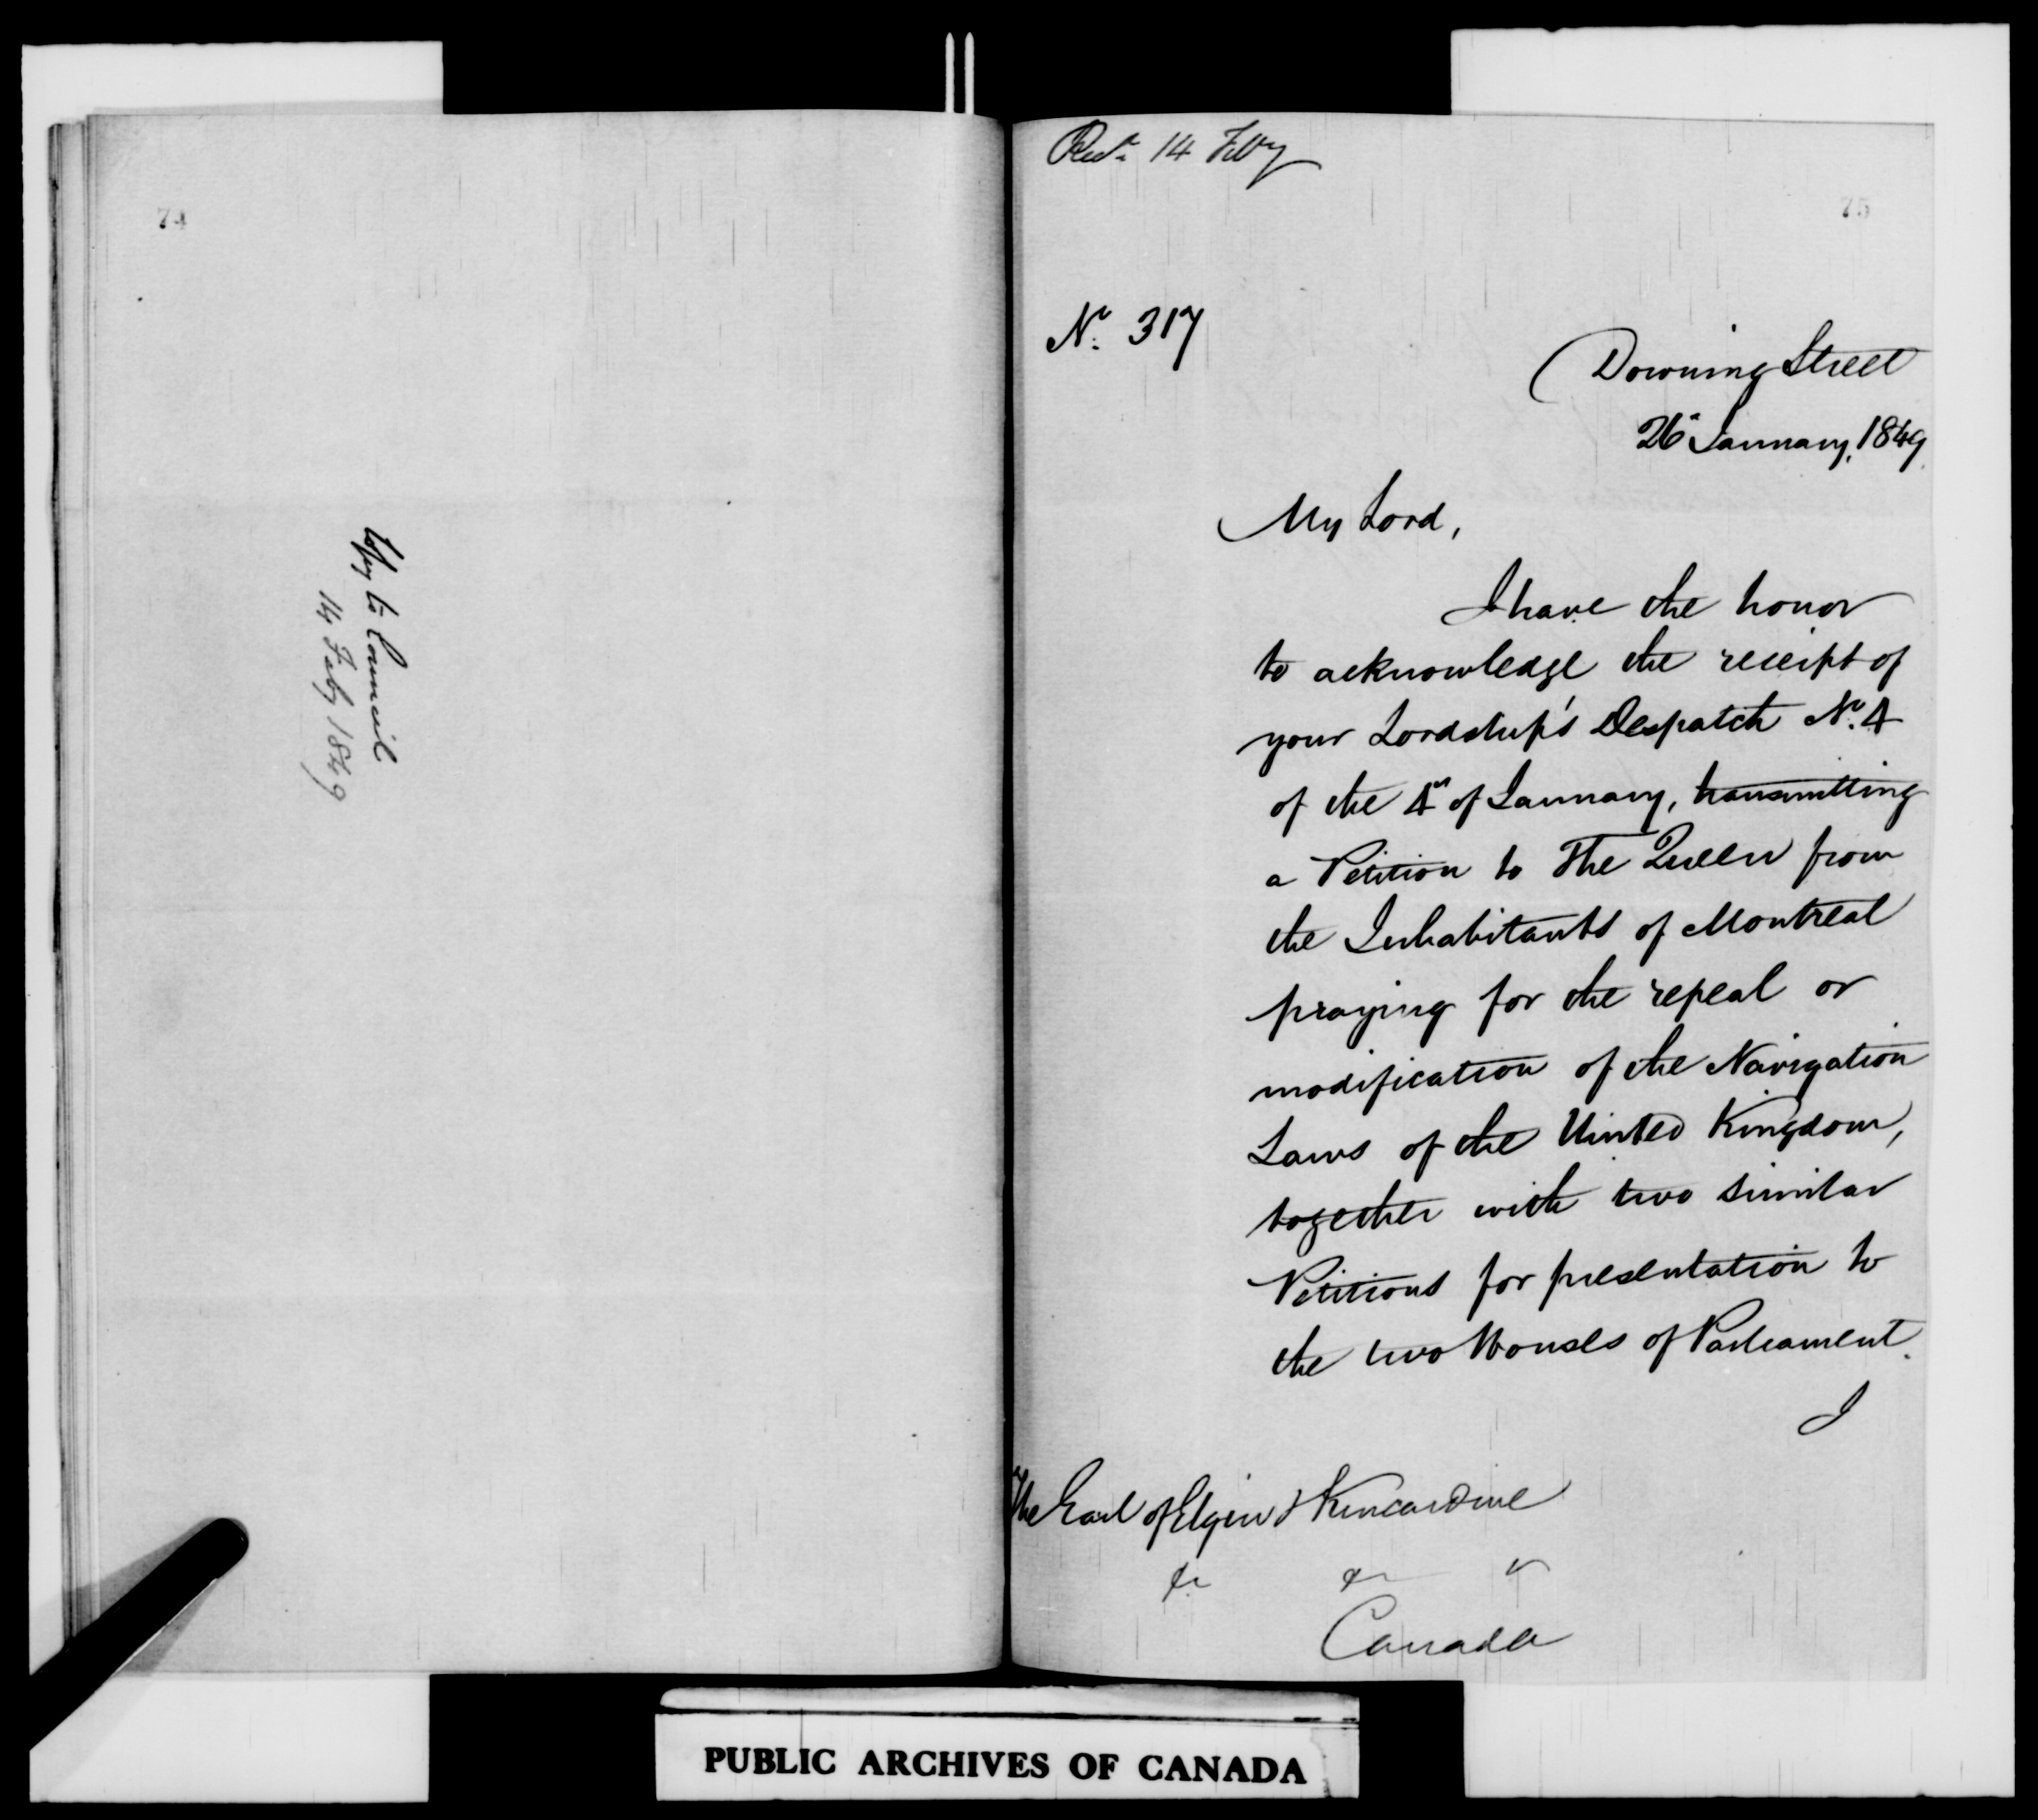 74
Copy to Council
14 Feby 1849
Recd. 14 Feby
75
No. 317
Downing Street
26 January, 1849
My Lord,
I have the honor
to acknowledge the receipt of
your Lordship's Despatch No. 4
of the 4th of January, transmitting
a Petition to The Queen from
the Inhabitants of Montreal
praying for the repeal or
modification of the Navigation
Laws of the United Kingdom,
together with two similar
Petitions for presentation to
the two Houses of Parliament.
I
The Earl of Elgin & Kincardine
&c &c &c
Canada
PUBLIC ARCHIVES OF CANADA